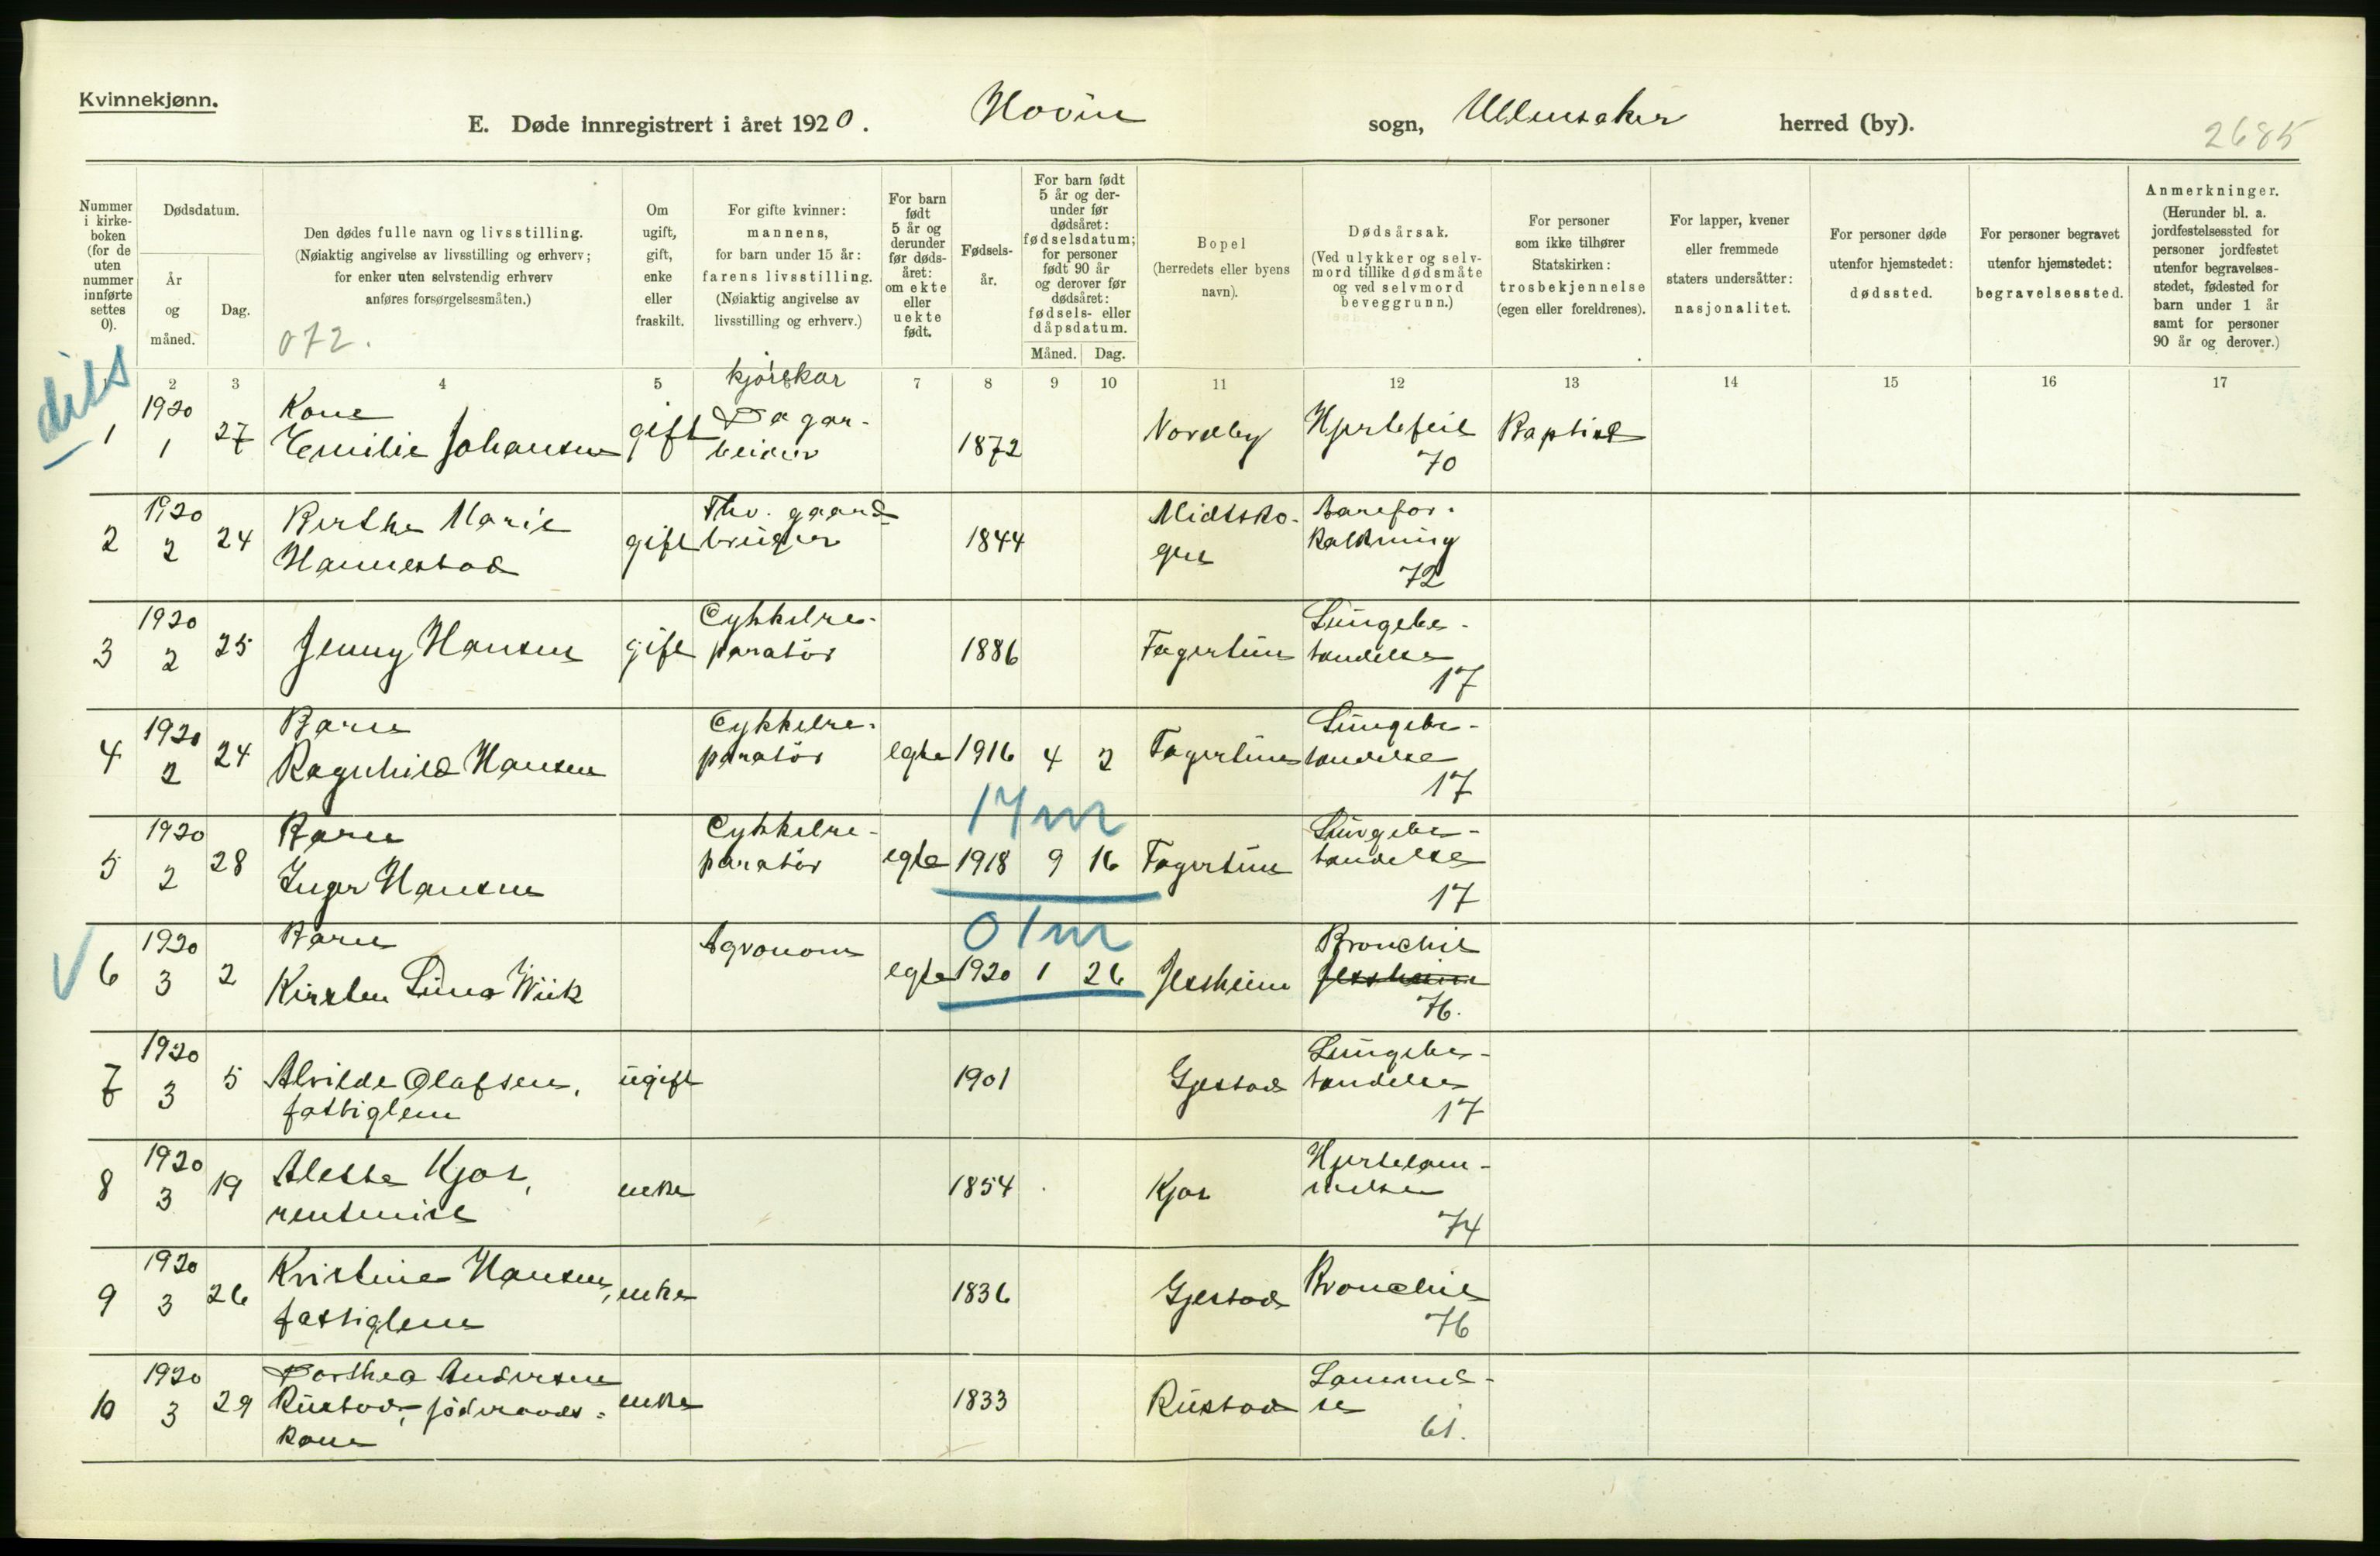 Kvinnekjønn.
E. Døde innregistrert i året 1920. Hovin sogn, Ullensaker herred (by).
2685
Nummer i kirkeboken (for de uten nummer innførte settes 0).
Dødsdatum.
År og måned.
Dag.
Den dødes fulle navn og livsstilling.
(Nøiaktig angivelse av livsstilling og erhverv;
for enker uten selvstendig erhverv
anføres forsørgelsesmåten.)
072.
Om ugift, gift, enke eller fraskilt.
For gifte kvinner: mannens,
for barn under 15 år: farens livsstilling.
(Nøiaktig angivelse av livsstilling og erhverv.)
For barn født 5 år og derunder før dødsåret: om ekte eller uekte født.
Fødselsår.
For barn født 5 år og derunder før dødsåret: fødselsdatum; for personer født 90 år og derover før dødsåret: fødsels- eller dåpsdatum.
Måned. Dag.
Bopel (herredets eller byens navn).
Dødsårsak.
(Ved ulykker og selvmord tillike dødsmåte og ved selvmord beveggrunn.)
For personer som ikke tilhører Statskirken: trosbekjennelse (egen eller foreldrenes).
For lapper, kvener eller fremmede staters undersåtter: nasjonalitet.
For personer døde utenfor hjemstedet: dødssted.
For personer begravet utenfor hjemstedet: begravelsessted.
Anmerkninger.
(Herunder bl. a. jordfestelsessted for personer jordfestet utenfor begravelsesstedet, fødested for barn under 1 år samt for personer 90 år og derover.)
2 3 4 5 7 8 9 10 11 12 13 14 15 16 17
diss
kjørekar
1 1920 1 27 Kone Emilie Johansen gift Dagarbeider 1872 Nordby Hjertefeil 70 Baptist
2 1920 2 24 Berthe Marie Hannestad gift Fhv. gaardbruger 1844 Midtskogen Aareforkalkning 72
3 1920 2 25 Jenny Hansen gift Cykkelreparatör 1886 Fagertun Lungebetændelse 17
4 1920 2 24 Barn Ragnhild Hansen Cykkelreparatör egte 1916 4 2 Fagertun Lungebetændelse 17
17m
5 1920 2 28 Barn Inger Hansen Cykkelreparatör egte 1918 9 16 Fagertun Lungebetændelse 17
01m
6 1920 3 2 Barn Kirsten Luna Wiik Agronom egte 1920 1 26 Jessheim Bronchit Jessheim 76.
7 1920 3 5 Alvilde Olafsen, fattiglem ugift 1901 Gjestad Lungebetændelse 17
8 1920 3 19 Alette Kjos, rentenist enke 1854 Kjos Hjertelammelse 74
9 1920 3 26 Kristine Hansen, fattiglem enke 1836 Gjestad Bronchit 76
10 1920 3 29 Dorthea Andersen Rustad, föderaadskone enke 1833 Rustad Lammelse 61.